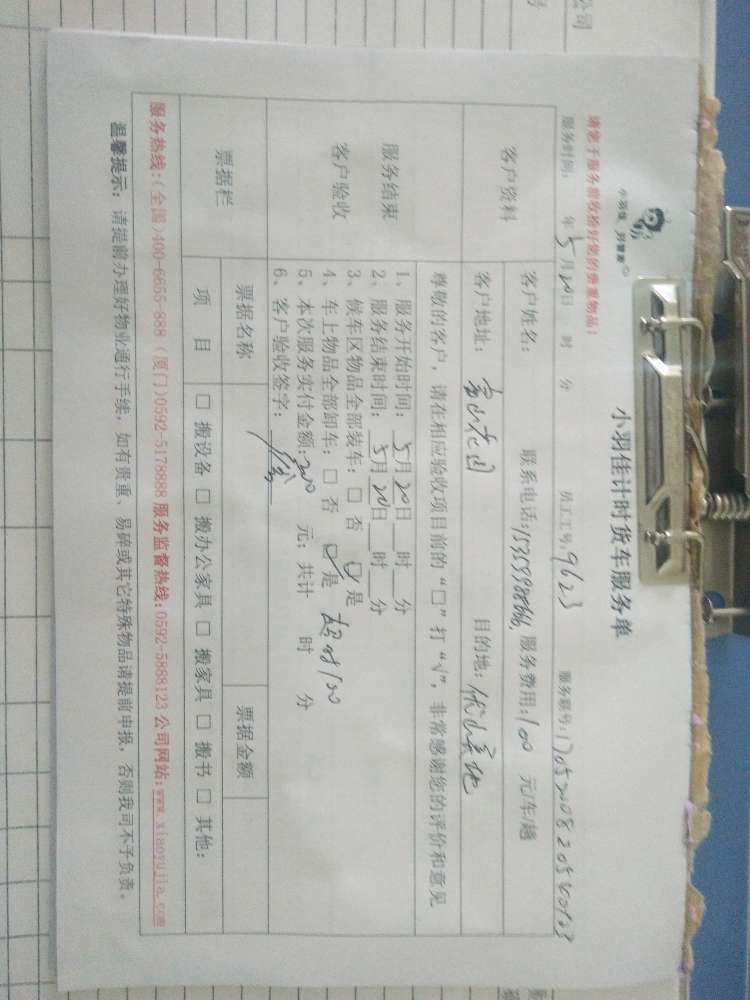 小羽佳计时货车服务单
请您于服务前收拾好您的贵重物品:
服务时间: 年5月20日 时 分 员工工号:9623 服务联号:
客户资料
客户姓名: 联系电话: 服务费用:100 元/车/趟
客户地址: 富山花园 目的地:
尊敬的客户,请在相应验收项目前的“□”打“√”,非常感谢您的评价和意见
服务结束
客户验收
1、服务开始时间: 5月20日 时 分
2、服务结束时间: 5月20日 时 分
3、候车区物品全部装车: □ 否 ☑ 是
4、车上物品全部卸车: □ 否 ☑ 是 超时100
5、本次服务实付金额:200 元; 共计 时 分
6、客户验收签字:
票据栏
票据名称 票据金额
项 目 □ 搬设备 □ 搬办公家具 □ 搬家具 □ 搬书 □ 其他:
服务热线:(全国)400-6655-888 (厦门)0592-5178888 服务监督热线:0592-5888123 公司网站:www.xiaoyujia.com
温馨提示: 请提前办理好物业通行手续,如有贵重、易碎或其它特殊物品请提前申报,否则我司不予负责。
公司